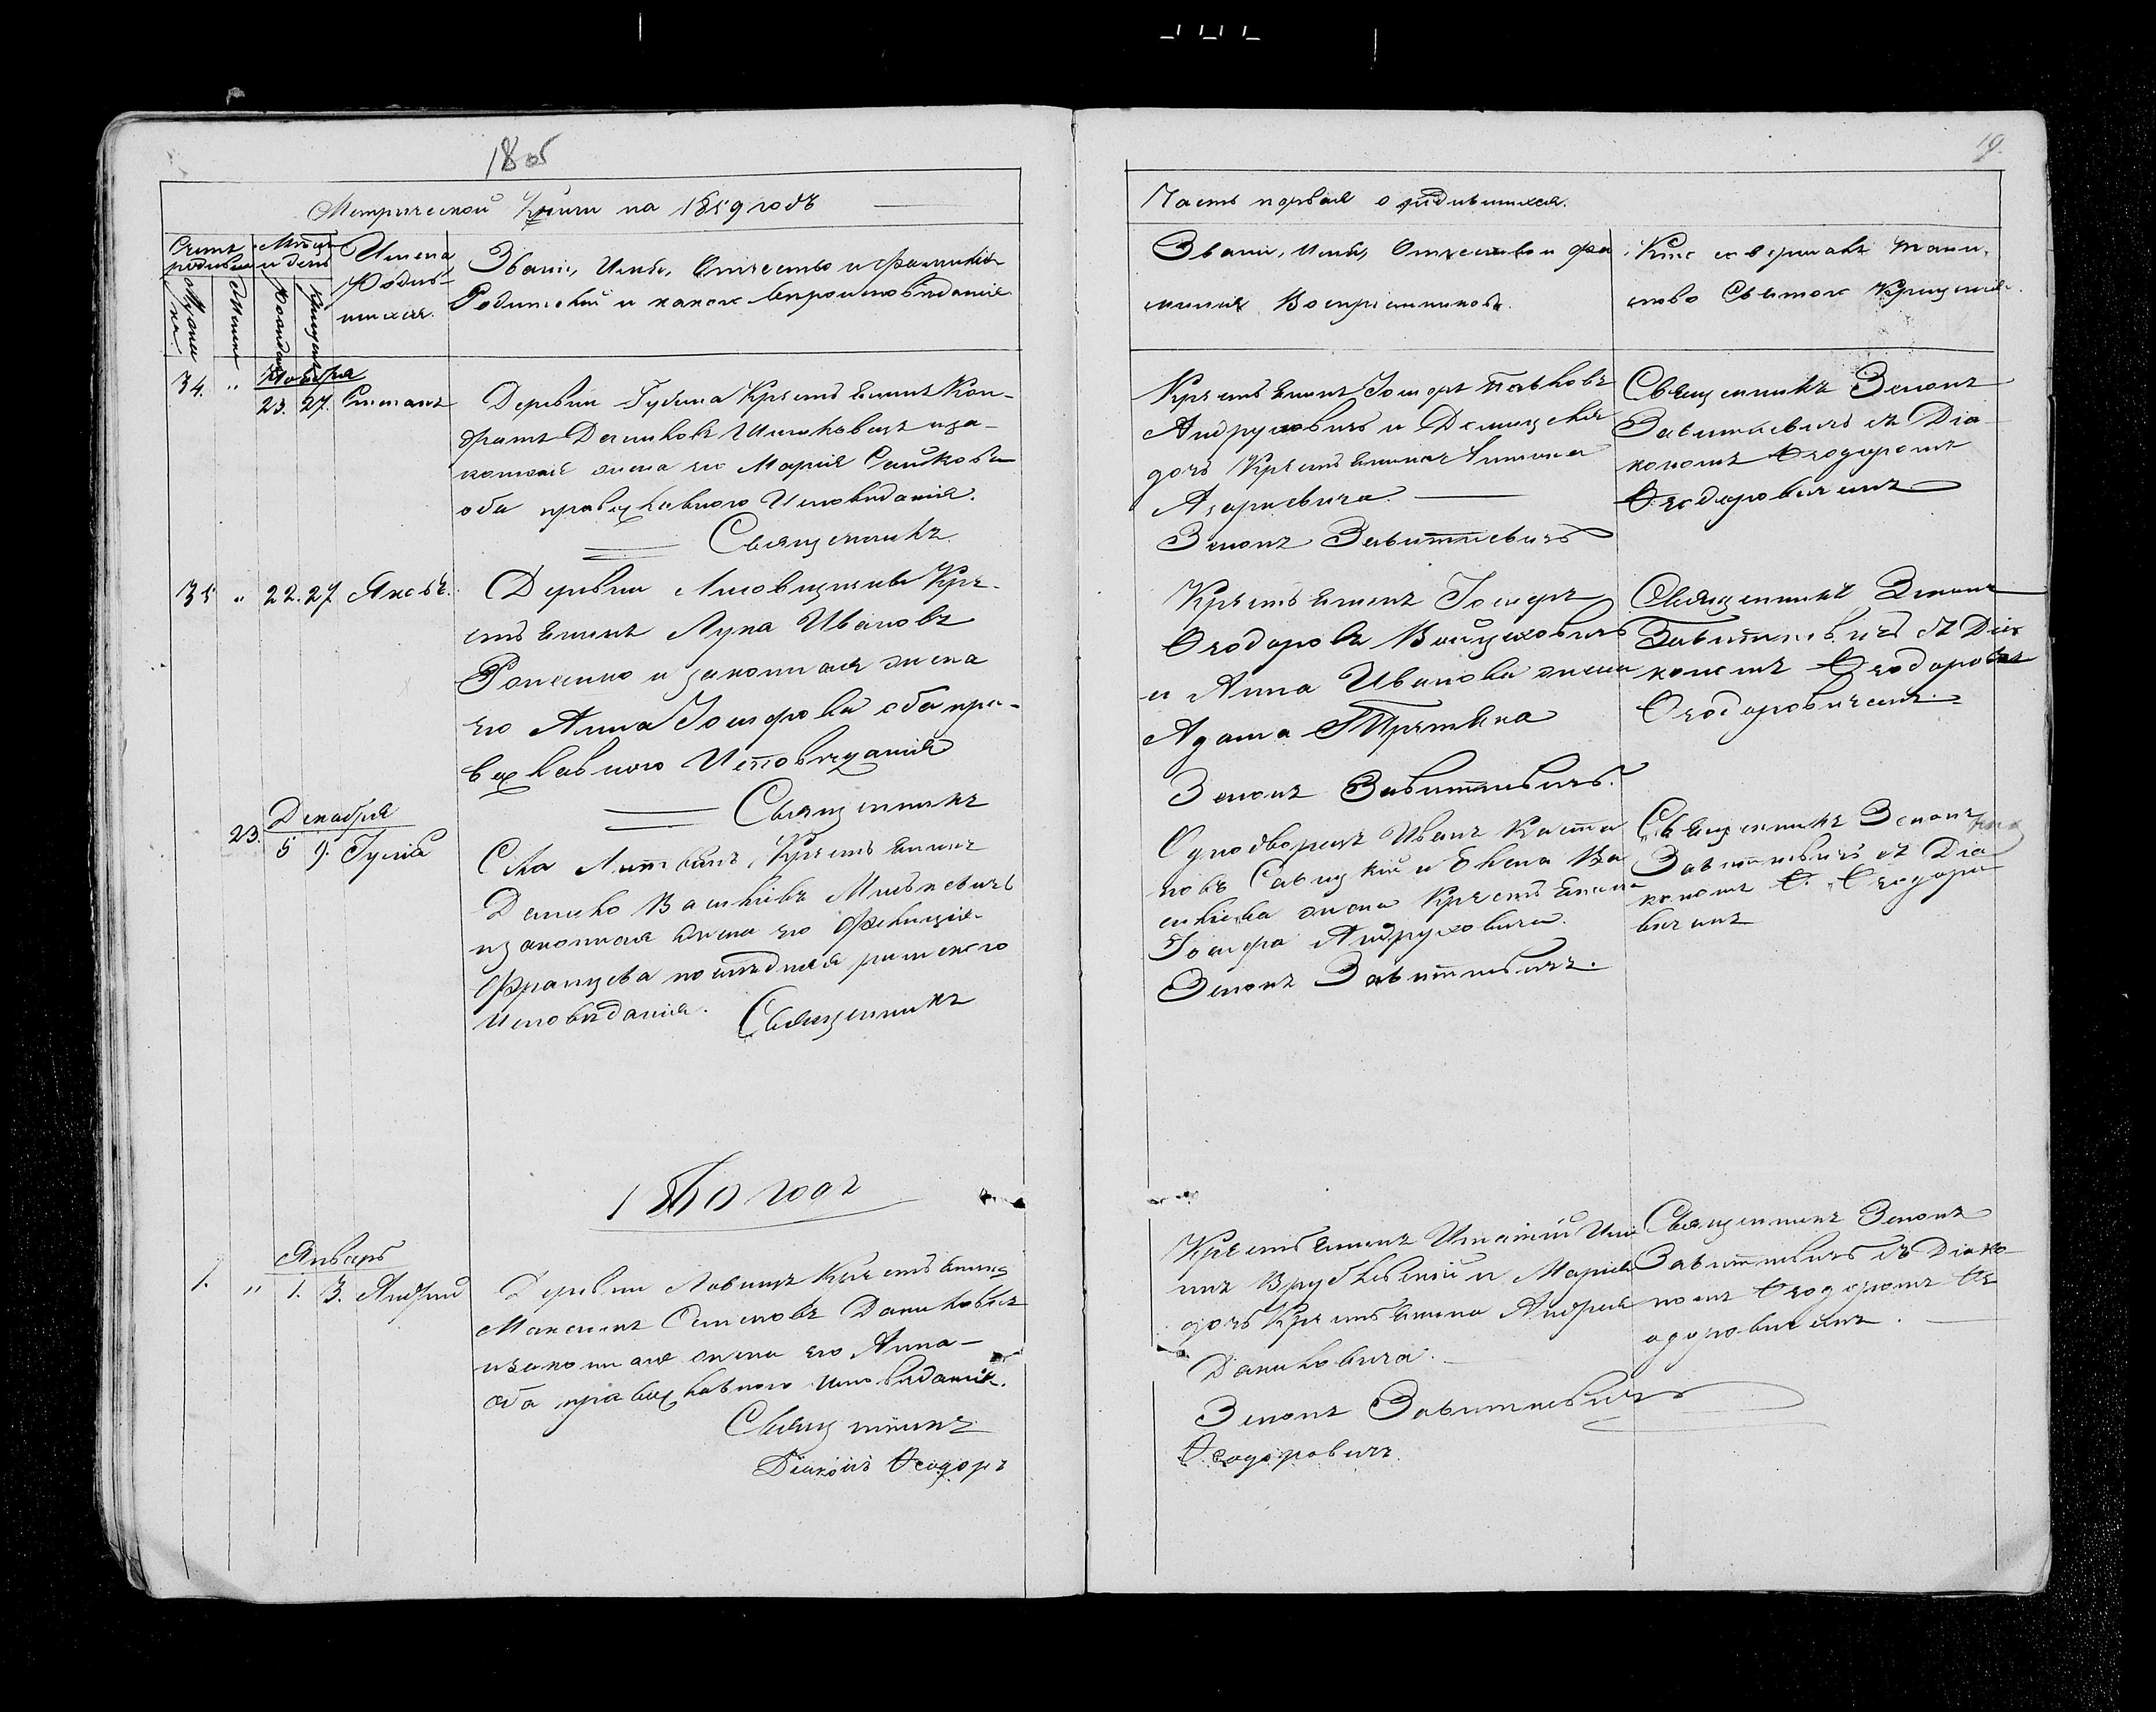 1805
19.
Метрической Книги на 1859 годъ
Часть первая о родившихся.
Счетъ родивш
Мѣсяцъ и день
Имена родив-
шихся.
Званіе, Имя, Отчество и фамилія
Родителей и какого вѣроисповѣданія
Мужеска
Женска
Рожденія
Крещенія
Званіе, Имя, Отчество и фа
милія Воспріемниковъ.
Кто совершалъ таин.
ство Святого Крещенія.
Ноября
34. " 23. 27. Степанъ
Деревни Крестьянинъ Кон-
дратъ и за-
конная жена его Марія
оба православного Исповѣданія.
Священникъ
Крестьянинъ Іосифъ Павловъ
Андруховичъ и
дочь Крестьянина Антона
Азаревича.
Зенонъ Завитневичъ
Священникъ Зенонъ
Завитневичъ съ Діа-
кономъ Ѳеодоромъ
Ѳеодоровичемъ
35 " 22. 27. Яковъ.
Деревни Кре-
стьянинъ Лука Ивановъ
и законная жена
его Анна Іосифова оба пра-
вославного Исповѣданія
Священникъ
Крестьянинъ Іосифъ
Ѳеодоровъ Войцеховичъ
и Анна Иванова жена
Адама
Зенонъ Завитневичъ.
Священникъ Зенонъ
Завитневичъ съ Діа
кономъ Ѳеодоромъ
Ѳеодоровичемъ.
Декабря
23. 6 9. Іулія
Села Крестьянинъ
Данило Васильевъ Миськевичъ
и законная жена его Фелиція
Францева послѣдняя римского
Исповѣданія. Священникъ
Однодворецъ Иванъ Каста
новъ Савицкій и Елена Ва
сильева жена Крестьянина
Іосифа Андруховича.
Зенонъ Завитневичъ.
Священникъ Зенонъ
Завитневичъ съ Діа
кономъ Ѳ. Ѳеодоро
вичемъ
1860 годъ
Январь
1. " 1. 3. Андрей
Деревни Крестьянинъ
Максимъ Семеновъ Даниловичъ
и законная жена его Анна
оба православного исповѣданія.
Священникъ
Діаконъ Ѳеодоръ
Крестьянинъ Игнатій
Врублевскій и Марія
дочь Крестьянина Андрея
Даниловича.
Зенонъ Завитневичъ
Ѳеодоровичъ.
Священникъ Зенонъ
Завитневичъ съ Діако
номъ Ѳеодоромъ Ѳе
одоровичемъ.